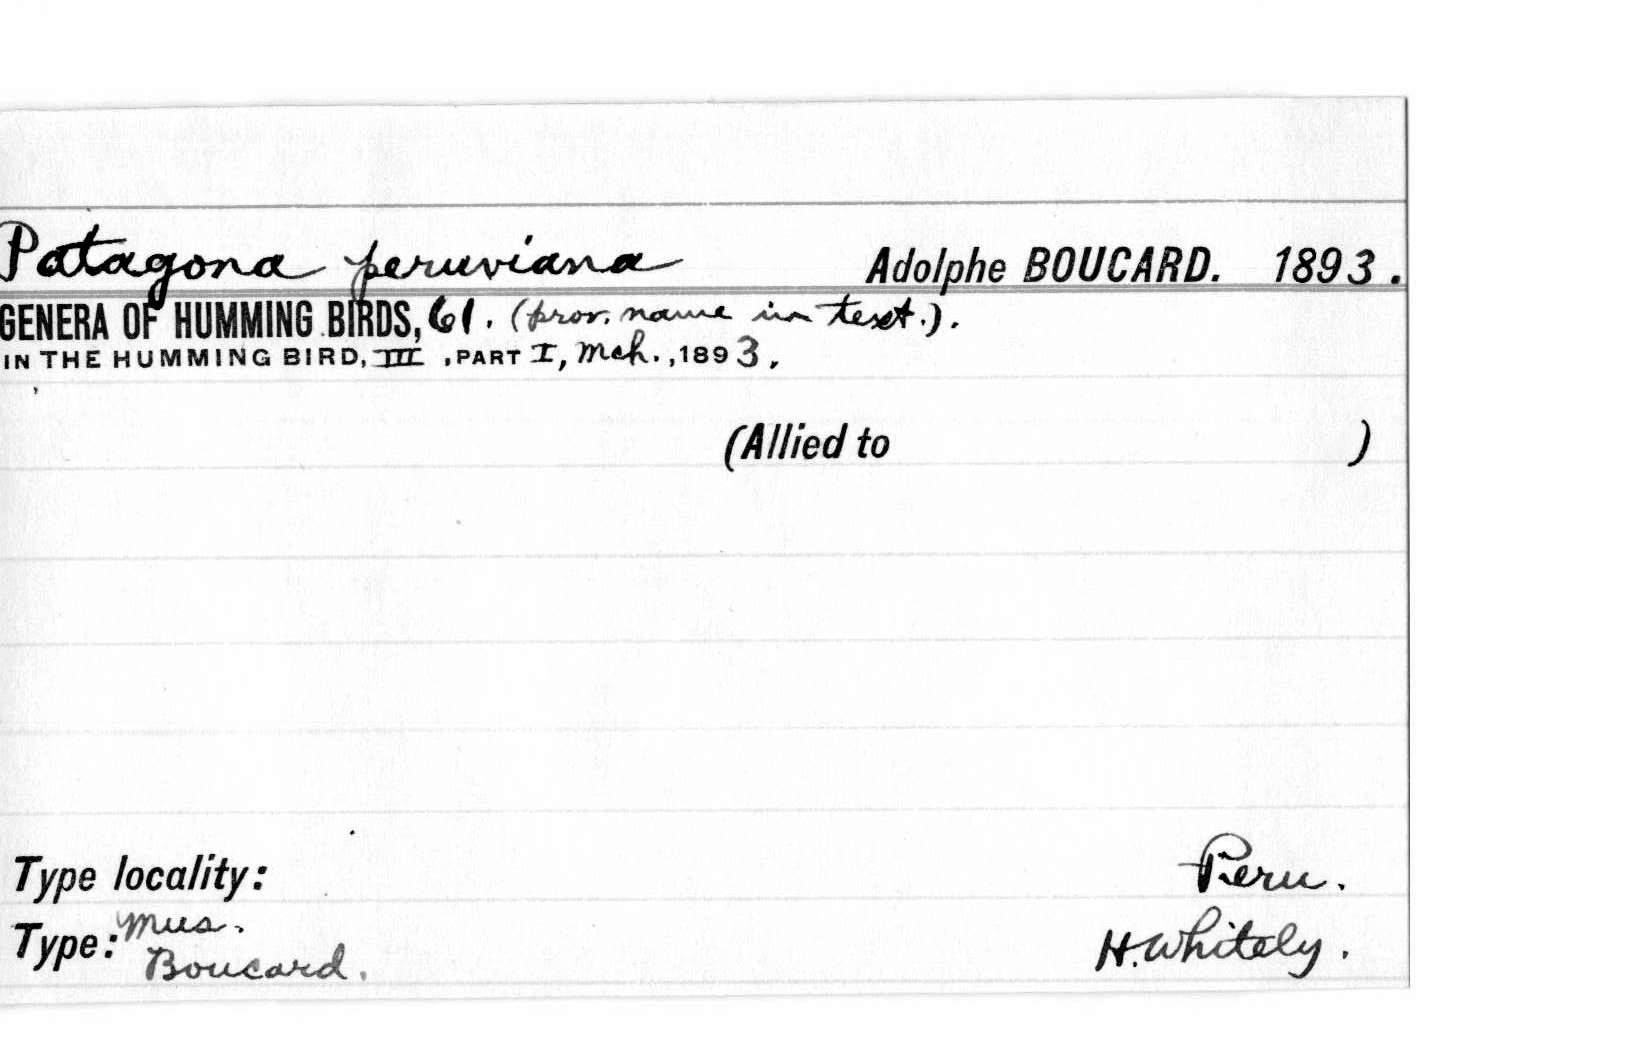 Patagona peruviana Adolphe BOUCARD. 1893.
GENERA OF HUMMING BIRDS, 61. (prov. name in text.).
IN THE HUMMING BIRD, III , PART I, Mch. , 1893,
(Allied to )
Type locality: Peru.
Type: Mus. Boucard. H. Whitely.